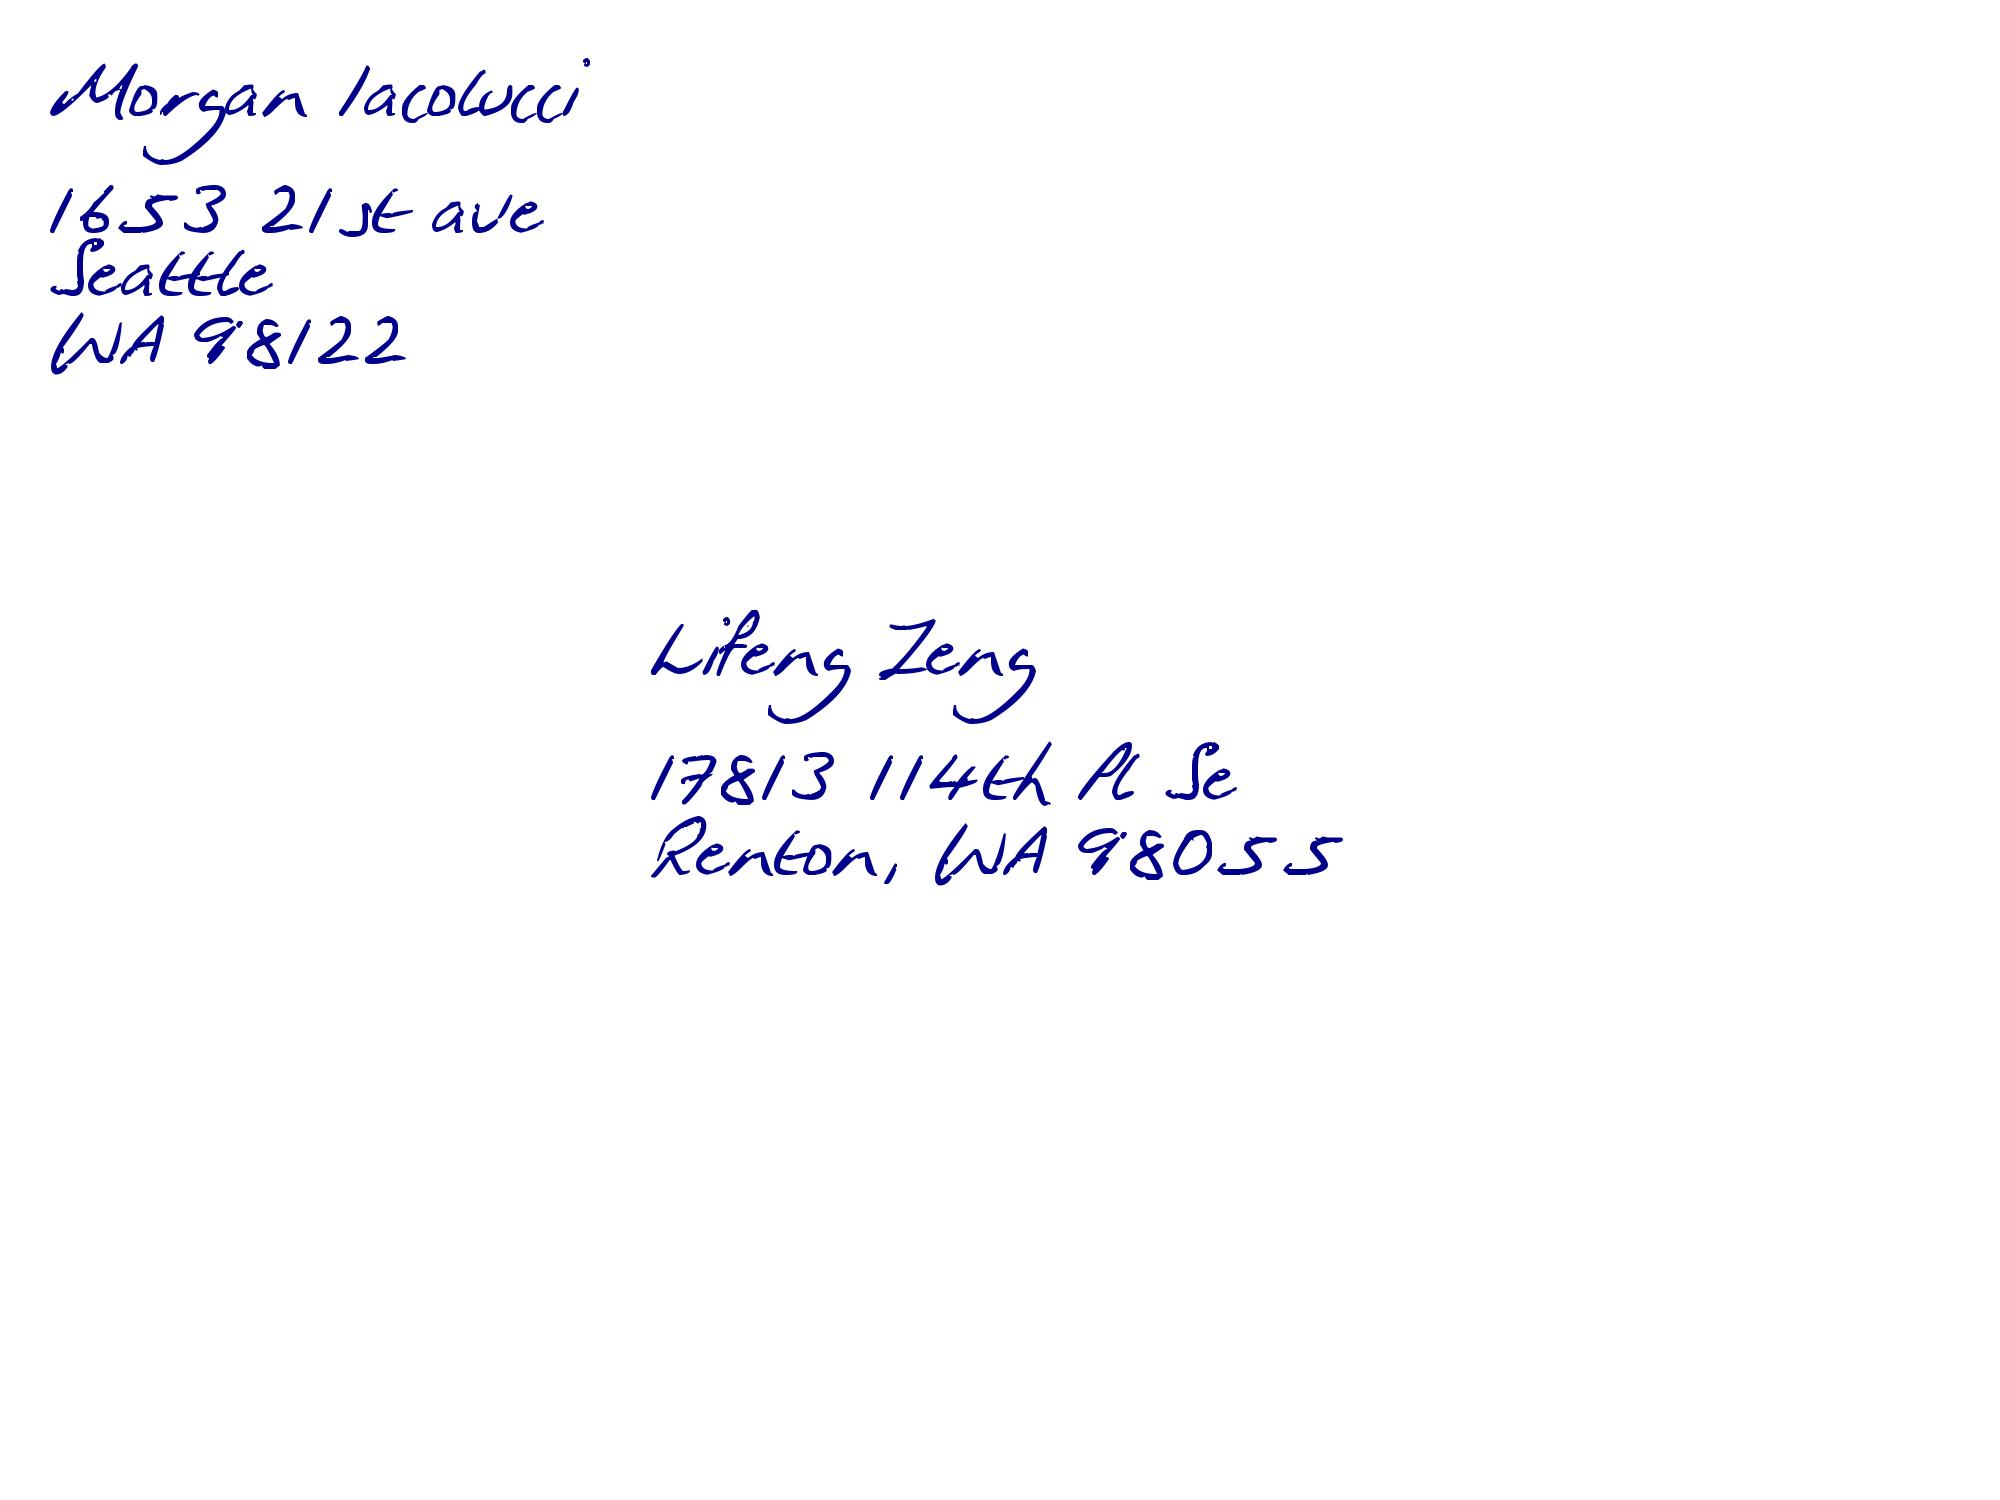 Morgan Iacolucci
1653 21st ave
Seattle
WA 98122
Lifeng Zeng
17813 114th Pl Se
Renton, WA 98055